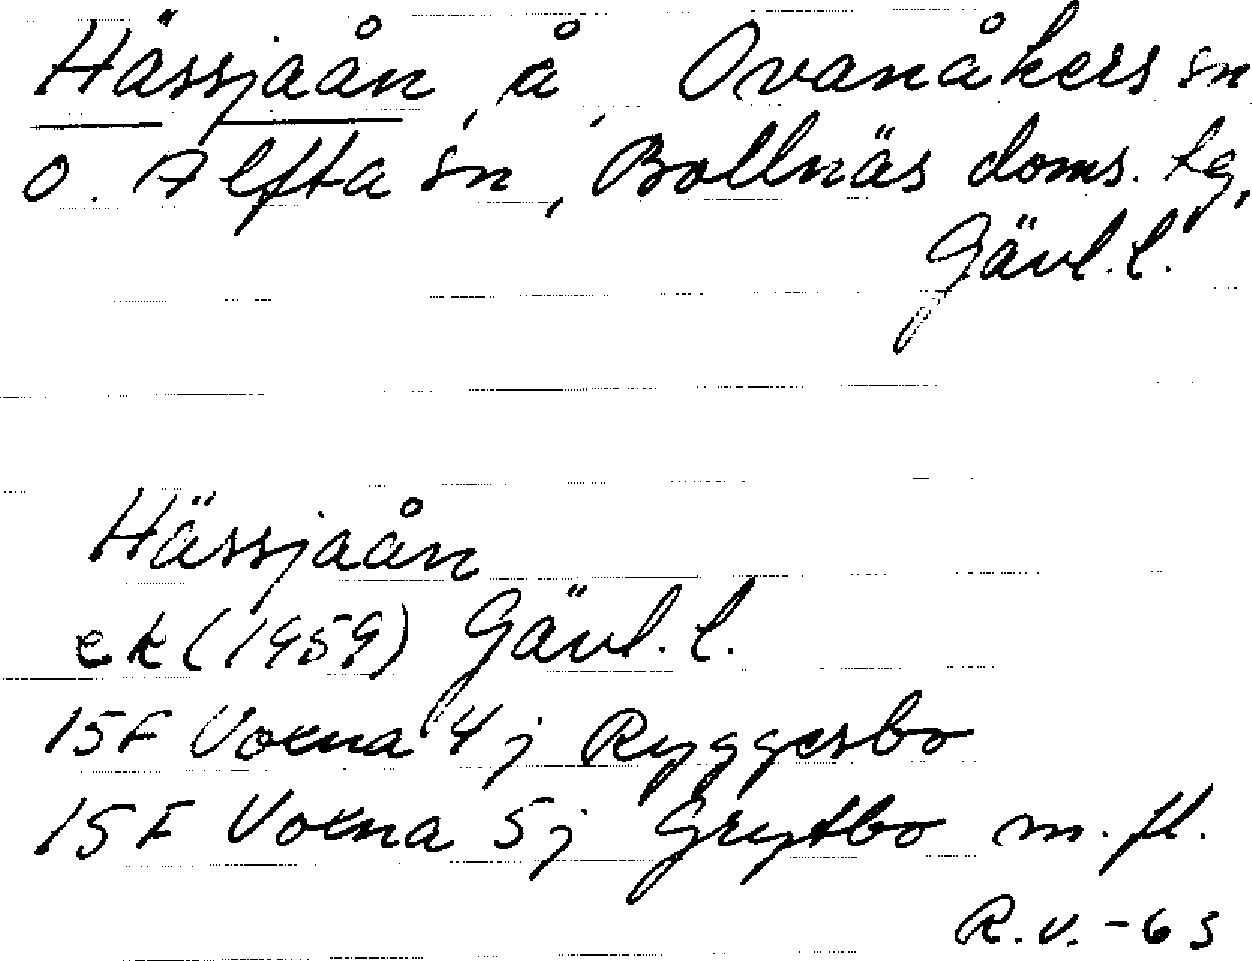 Hässjaån, å, Ovanåkers sn
o. Alfta sn, Bollnäs doms. tg,
Gävl.l.
Hässjaån
ek (1959) Gävl.l.
15F Voxna 4 j Ryggesbo
15F Voxna 5 j Grytbo m.fl.
R.V.-63